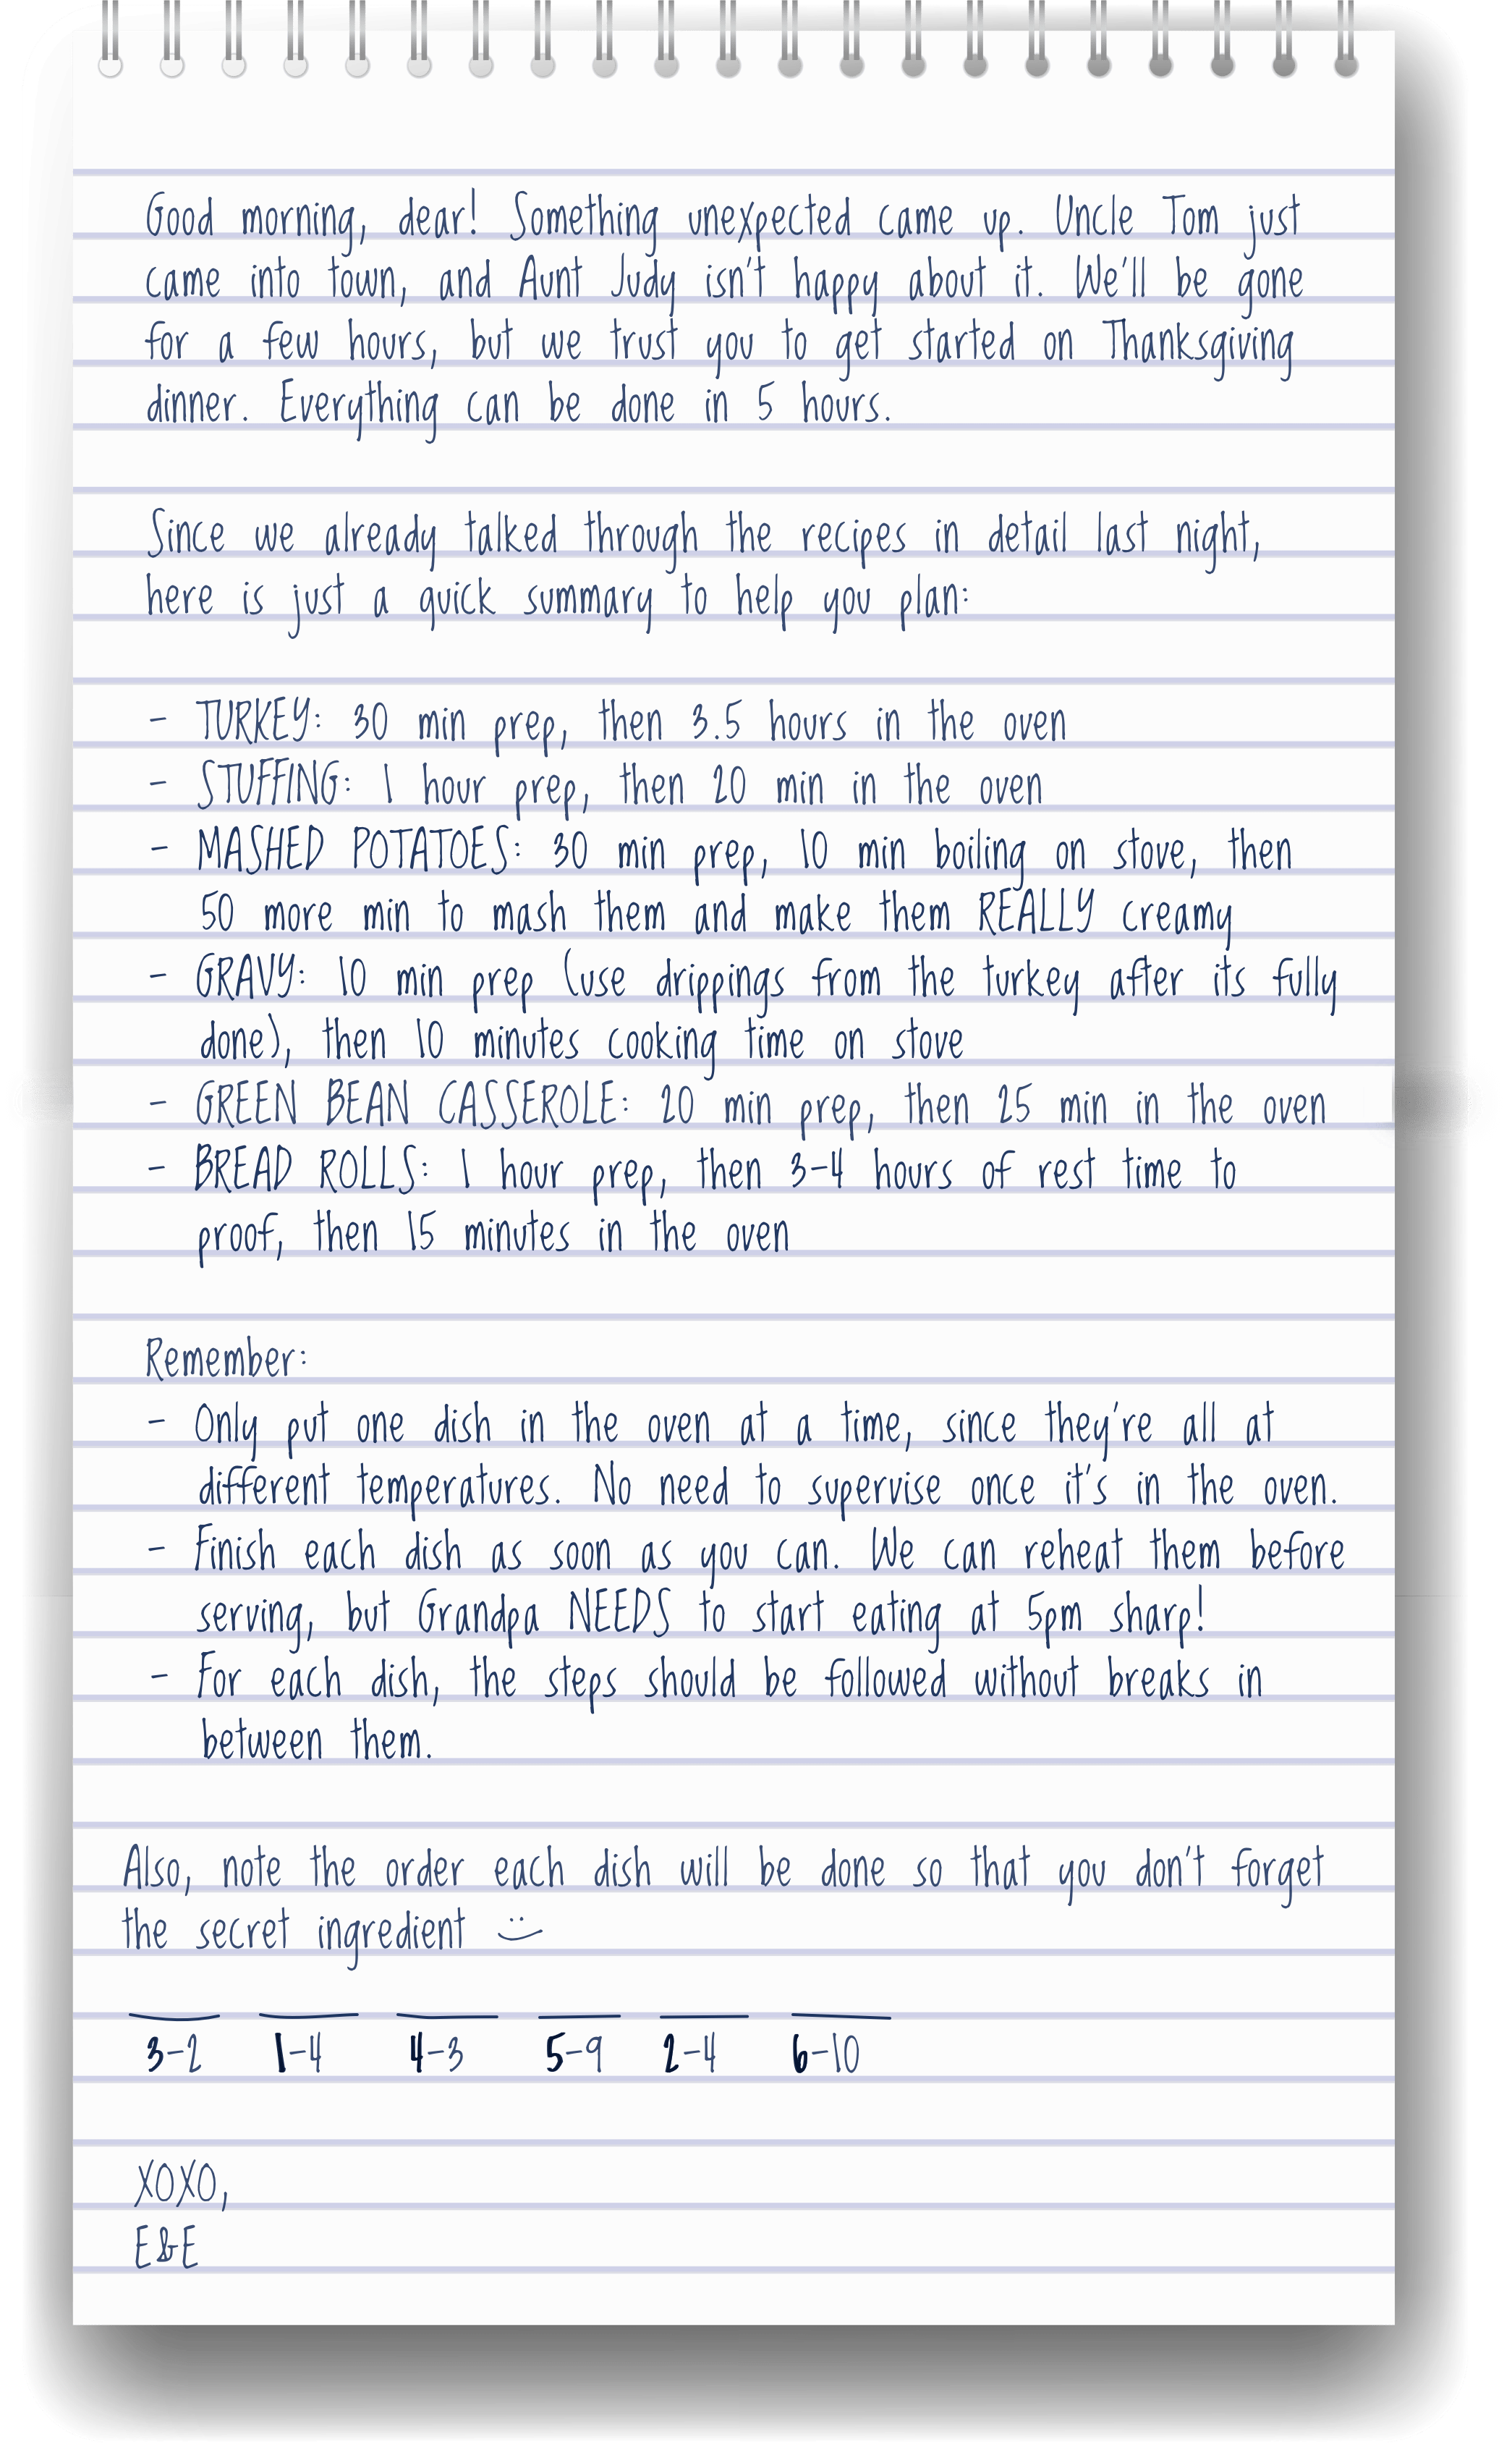 Good morning, dear! Something unexpected came up. Uncle Tom just
came into town, and Aunt Judy isn't happy about it. We'll be gone
for a few hours, but we trust you to get started on Thanksgiving
dinner. Everything can be done in 5 hours.
Since we already talked through the recipes in detail last night,
here is just a quick summary to help you plan:
- TURKEY: 30 min prep, then 3.5 hours in the oven
- STUFFING: 1 hour prep, then 20 min in the oven
- MASHED POTATOES: 30 min prep, 10 min boiling on stove, then
50 more min to mash them and make them REALLY creamy
- GRAVY: 10 min prep (use drippings from the turkey after its fully
done), then 10 minutes cooking time on stove
- GREEN BEAN CASSEROLE: 20 min prep, then 25 min in the oven
- BREAD ROLLS: 1 hour prep, then 3-4 hours of rest time to
proof, then 15 minutes in the oven
Remember:
- Only put one dish in the oven at a time, since they're all at
different temperatures. No need to supervise once it's in the oven.
- Finish each dish as soon as you can. We can reheat them before
serving, but Grandpa NEEDS to start eating at 5pm sharp!
- For each dish, the steps should be followed without breaks in
between them.
Also, note the order each dish will be done so that you don't forget
the secret ingredient :)
3-2 1-4 4-3 5-9 2-4 6-10
XOXO,
E&E